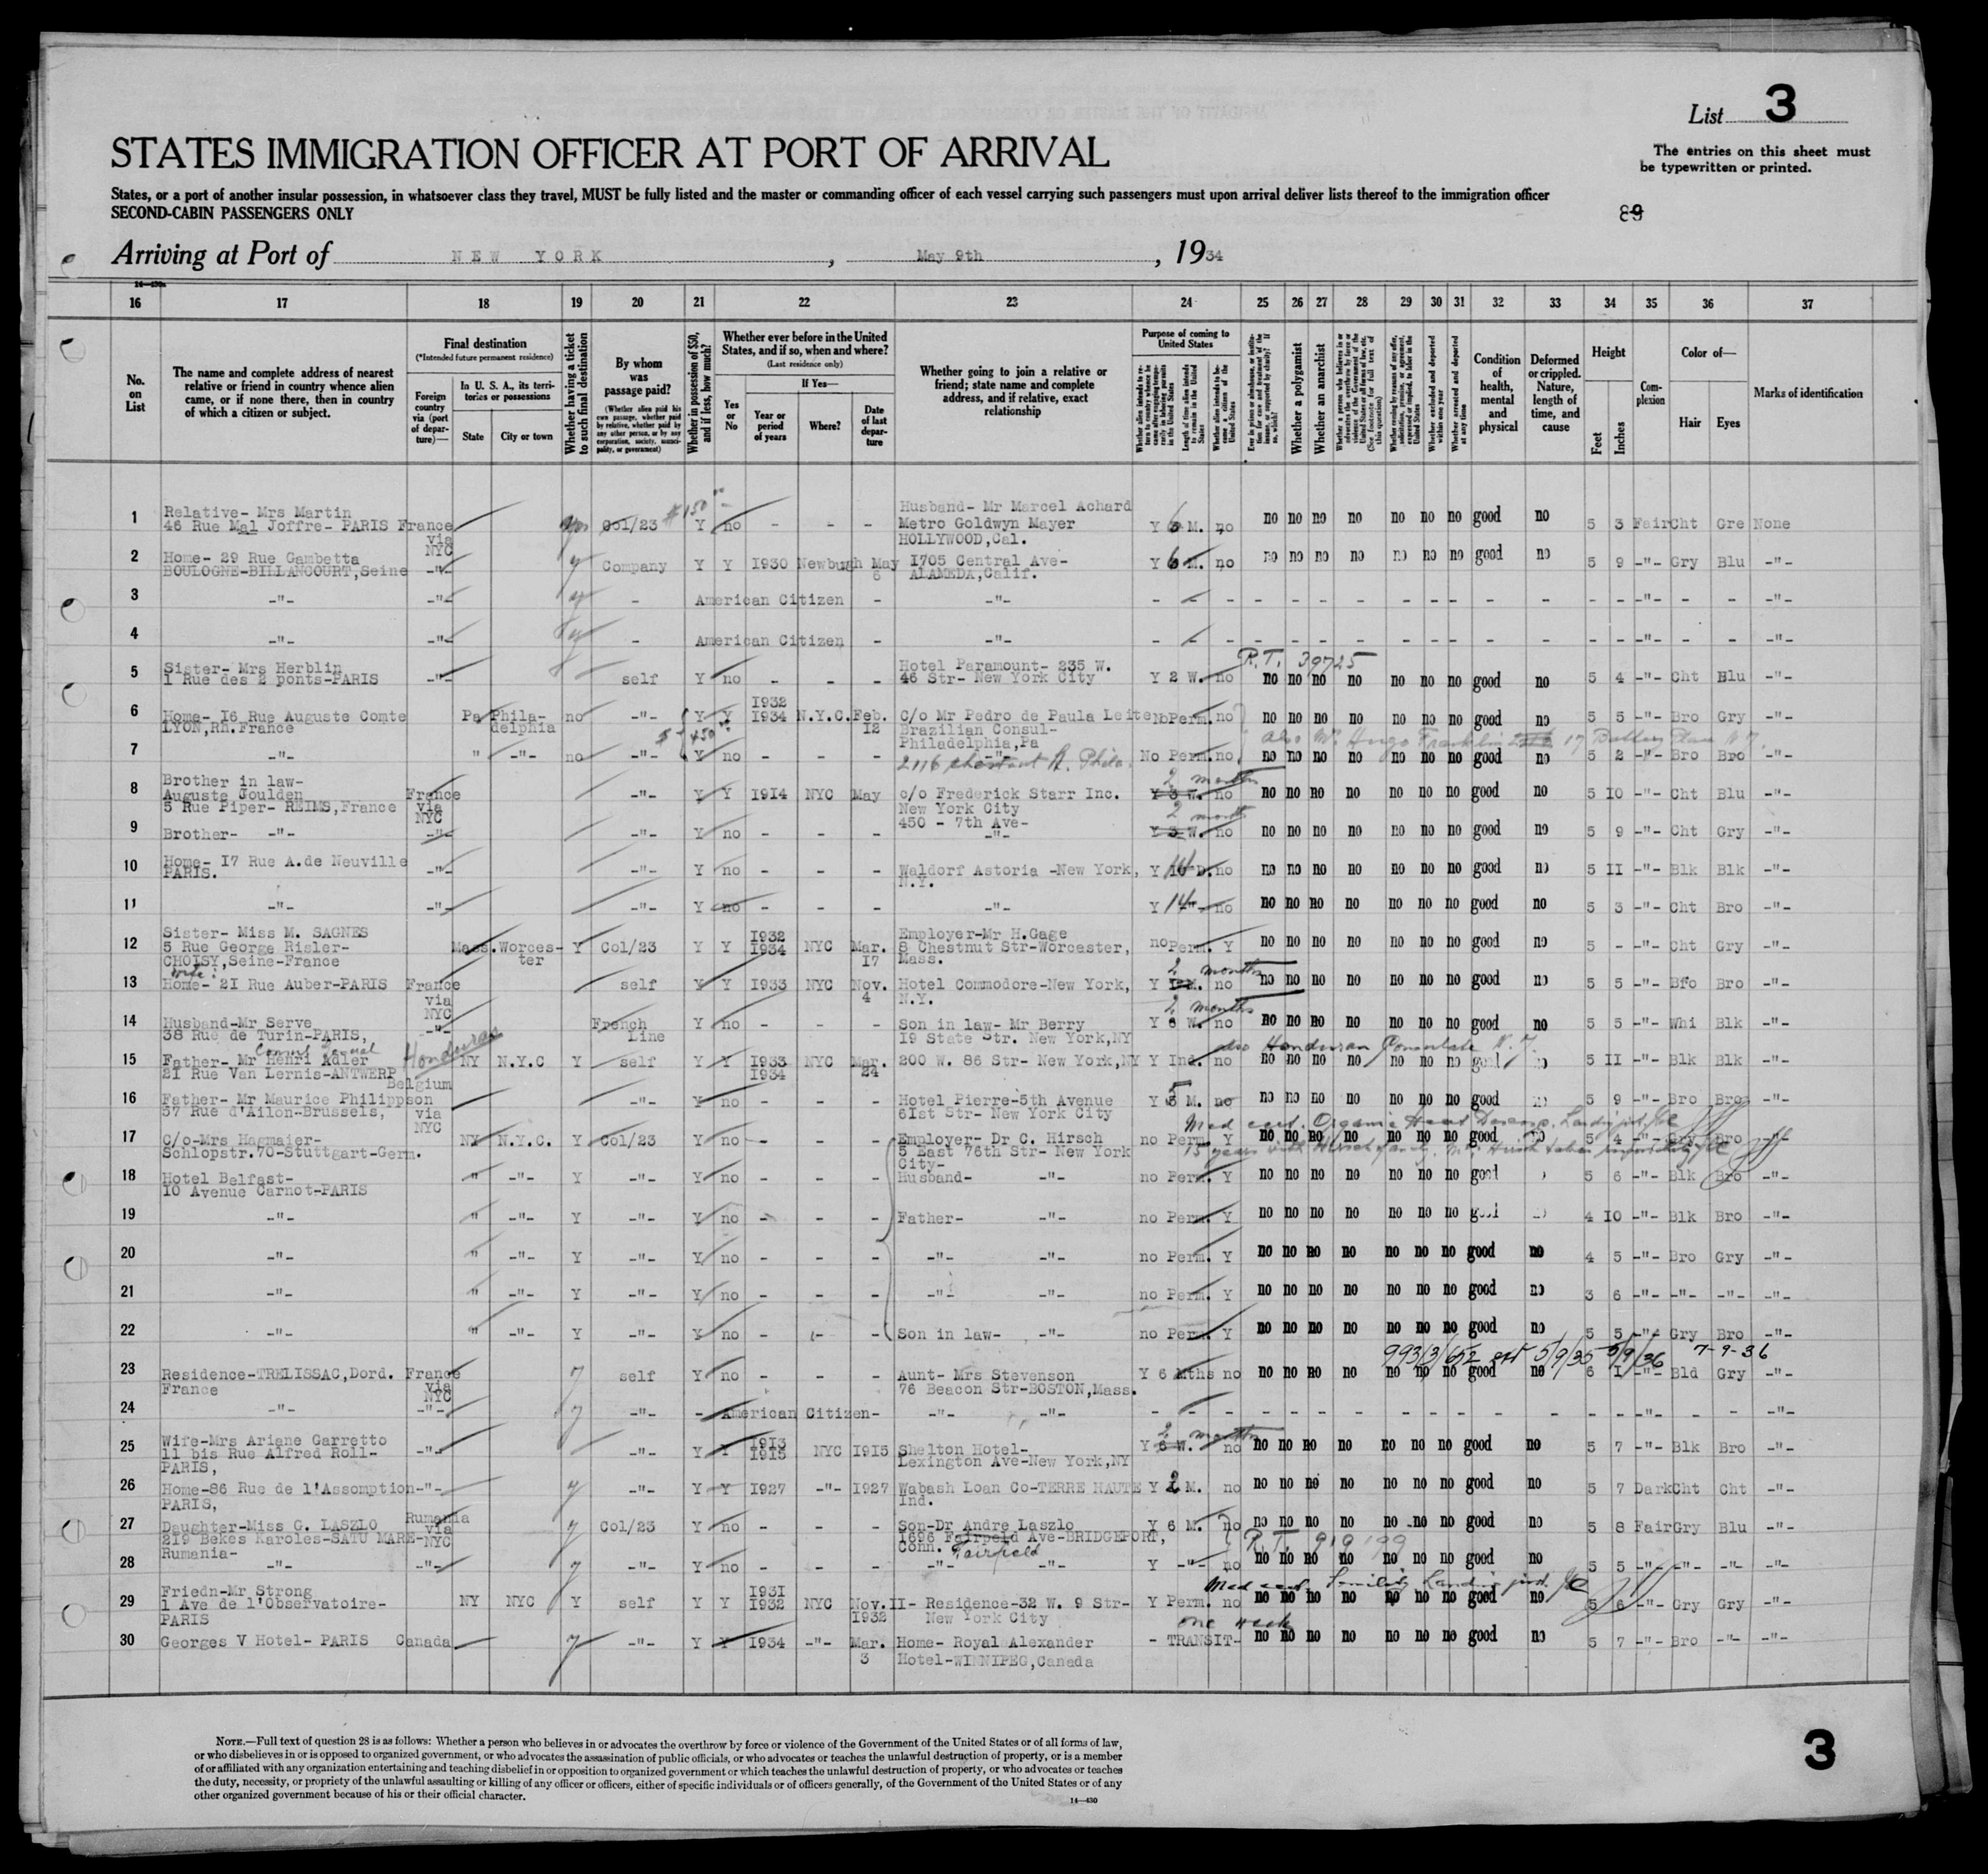 List 3
STATES IMMIGRATION OFFICER AT PORT OF ARRIVAL
The entries on this sheet must
be typewritten or printed.
States, or a port of another insular possession, in whatsoever class they travel, MUST be fully listed and the master or commanding officer of each vessel carrying such passengers must upon arrival deliver lists thereof to the immigration officer
SECOND-CABIN PASSENGERS ONLY
Arriving at Port of NEW YORK, May 9th, 1934
16 17 18 19 20 21 22 23 24 25 26 27 28 29 30 31 32 33 34 35 36 37
No. on List
The name and complete address of nearest relative or friend in country whence alien came, or if none there, then in country of which a citizen or subject.
Final destination
(*Intended future permanent residence)
Foreign country via (port of departure)—
In U. S. A., its territories or possessions
State
City or town
Whether having a ticket to such final destination
By whom was passage paid?
(Whether alien paid his own passage, whether paid by relative, whether paid by any other person, or by any corporation, society, municipality, or government)
Whether in possession of $50, and if less, how much?
Whether ever before in the United States, and if so, when and where?
(Last residence only)
Yes or No
If Yes—
Year or period of years
Where?
Date of last departure
Whether going to join a relative or friend; state name and complete address, and if relative, exact relationship
Purpose of coming to United States
Length of time alien intends to remain in the United States
Whether alien intends to become a citizen of the United States
Whether a polygamist
Whether an anarchist
Whether excluded and deported within one year
Whether arrested and deported at any time
Condition of health, mental and physical
Deformed or crippled. Nature, length of time, and cause
Height
Feet
Inches
Complexion
Color of—
Hair
Eyes
Marks of identification
1 Relative- Mrs Martin
46 Rue Mal Joffre- PARIS France via NYC yes Col/23 $150 Y no - - - Husband- Mr Marcel Achard
Metro Goldwyn Mayer
HOLLYWOOD,Cal. Y 6 M. no no no no no no no no good no 5 3 Fair Cht Gre None
2 Home- 29 Rue Gambetta
BOULOGNE-BILLANCOURT,Seine -"- y Company Y Y I930 Newburgh May 6 I705 Central Ave-
ALAMEDA,Calif. Y 6 M. no no no no no no no no good no 5 9 -"- Gry Blu -"-
3 -"- -"- y - American Citizen - -"- - - - - - - - - - - - - - - -"- - - -"-
4 -"- -"- y - American Citizen - -"- - - - - - - - - - - - - - - -"- - - -"-
5 Sister- Mrs Herblin
1 Rue des 2 ponts-PARIS -"- self Y no - - - Hotel Paramount- 235 W.
46 Str- New York City Y 2 W. no R.T. 39725 no no no no no no no good no 5 4 -"- Cht Blu -"-
6 Home- I6 Rue Auguste Comte
LYON,Rh.France Pa Philadelphia no -"- Y Y I932
I934 N.Y.C. Feb. I2 c/o Mr Pedro de Paula Leite
Brazilian Consul-
Philadelphia,Pa No Perm. no no no no no no no no good no 5 5 -"- Bro Gry -"-
also Mr. Hugo Franklin 17 Battery Place N.Y.
7 -"- " -"- no -"- $450 Y no - - - -"-
2116 Chestnut St. Phila. No Perm. no no no no no no no no good no 5 2 -"- Bro Bro -"-
8 Brother in law-
Auguste Joulden
5 Rue Piper- REIMS,France France via NYC -"- Y Y I9I4 NYC May c/o Frederick Starr Inc.
New York City
450 - 7th Ave- 2 months Y 3 W. no no no no no no no no good no 5 I0 -"- Cht Blu -"-
9 Brother- -"- -"- -"- Y no - - - -"- 2 months Y 3 W. no no no no no no no no good no 5 9 -"- Cht Gry -"-
10 Home- I7 Rue A.de Neuville
PARIS. -"- -"- Y no - - - Waldorf Astoria -New York,
N.Y. Y 14 D. no no no no no no no no good no 5 II -"- Blk Blk -"-
11 -"- -"- -"- Y no - - - -"- Y 14 -"- no no no no no no no no good no 5 3 -"- Cht Bro -"-
12 Sister- Miss M. SAGNES
5 Rue George Risler-
CHOISY,Seine-France Mass. Worcester Y Col/23 Y Y I932
I934 NYC Mar. I7 Employer-Mr H.Gage
8 Chestnut Str-Worcester,
Mass. no Perm. Y no no no no no no no good no 5 - -"- Cht Gry -"-
13 wife:
Home- 2I Rue Auber-PARIS France via NYC self Y Y I933 NYC Nov. 4 Hotel Commodore-New York,
N.Y. 2 months Y no no no no no no no no good no 5 5 -"- Bro Bro -"-
14 Husband-Mr Serve
38 Rue de Turin-PARIS, -"- French Line Y no - - - Son in law- Mr Berry
I9 State Str. New York,NY 2 months Y 6 W. no no no no no no no no good no 5 5 -"- Whi Blk -"-
15 Consul General
Father- Mr Henri Adler
2I Rue Van Lernis-ANTWERP
Belgium Honduras NY N.Y.C Y self Y Y I933
I934 NYC Mar. 24 200 W. 86 Str- New York,NY Y Ind. no also Honduran Consulate N.Y. no no no no no no no good no 5 II -"- Blk Blk -"-
16 Father- Mr Maurice Philippson
57 Rue d'Ailon-Brussels, via NYC -"- Y no - - - Hotel Pierre-5th Avenue
6Ist Str- New York City Y 5 M. no no no no no no no no good no 5 9 -"- Bro Bro -"-
Med cert. Organic Heart Disease,
17 C/o-Mrs Hagmaier-
Schlopstr.70-Stuttgart-Germ. NY N.Y.C. Y Col/23 Y no - - - Employer- Dr C. Hirsch
5 East 76th Str- New York
City- no Perm. Y no no no no no no no good no 5 4 -"- Gry Bro -"-
15 years with Hirsch family. Mr. Hirsch takes
18 Hotel Belfast-
I0 Avenue Carnot-PARIS " -"- Y -"- Y no - - - Husband- -"- no Perm. Y no no no no no no no good 5 6 -"- Blk Bro -"-
19 -"- " -"- Y -"- Y no - - - Father- -"- no Perm. Y no no no no no no no good 4 I0 -"- Blk Bro -"-
20 -"- " -"- Y -"- Y no - - - -"- -"- no Perm. Y no no no no no no no good no 4 5 -"- Bro Gry -"-
21 -"- " -"- Y -"- Y no - - - -"- -"- no Perm. Y no no no no no no no good no 3 6 -"- -"- -"- -"-
22 -"- " -"- Y -"- Y no - - - Son in law- -"- no Perm. Y no no no no no no no good no 5 5 -"- Gry Bro -"-
993 3/652 ext 5/9/35 5/9/36 7-9-36
23 Residence-TRELISSAC,Dord.
France France via NYC y self Y no - - - Aunt- Mrs Stevenson
76 Beacon Str-BOSTON,Mass. Y 6 Mths no no no no no no no no good no 6 I -"- Bld Gry -"-
24 -"- -"- y -"- - American Citizen- -"- -"- - - - - - - - - - - - - - -"- - - -"-
25 Wife-Mrs Ariane Garretto
11 bis Rue Alfred Roll-
PARIS, -"- -"- Y Y I9I3
I9I5 NYC I9I5 Shelton Hotel-
Lexington Ave-New York,NY 2 months Y 6 W. no no no no no no no no good no 5 7 -"- Blk Bro -"-
26 Home-86 Rue de l'Assomption
PARIS, -"- y -"- Y Y I927 -"- I927 Wabash Loan Co-TERRE HAUTE
Ind. Y 2 M. no no no no no no no no good no 5 7 Dark Cht Cht -"-
27 Daughter-Miss G. LASZLO
219 Bekes Karoles-SATU MARE-
Rumania- Rumania via NYC y Col/23 Y no - - - Son-Dr Andre Laszlo
I696 Fairpeld Ave-BRIDGEPORT,
Conn. Fairfield Y 6 M. no no no no no no no no good no 5 8 Fair Gry Blu -"-
28 -"- -"- y -"- Y no - - - -"- -"- Y -"- no R.T. 919199 no no no no no no no good no 5 5 -"- -"- -"- -"-
Med cert. Senility
29 Friedn-Mr Strong
1 Ave de l'Observatoire-
PARIS NY NYC Y self Y Y I93I
I932 NYC Nov.II- I932 Residence-32 W. 9 Str-
New York City Y Perm. no no no no no no no no good no 5 6 -"- Gry Gry -"-
30 Georges V Hotel- PARIS Canada y -"- Y Y I934 -"- Mar. 3 Home- Royal Alexander
Hotel-WINNIPEG,Canada one week - TRANSIT- no no no no no no no good no 5 7 -"- Bro -"- -"-
NOTE.—Full text of question 28 is as follows: Whether a person who believes in or advocates the overthrow by force or violence of the Government of the United States or of all forms of law,
or who disbelieves in or is opposed to organized government, or who advocates the assassination of public officials, or who advocates or teaches the unlawful destruction of property, or is a member
of or affiliated with any organization entertaining and teaching disbelief in or opposition to organized government or which teaches the unlawful destruction of property, or who advocates or teaches
the duty, necessity, or propriety of the unlawful assaulting or killing of any officer or officers, either of specific individuals or of officers generally, of the Government of the United States or of any
other organized government because of his or their official character.
14—430
3